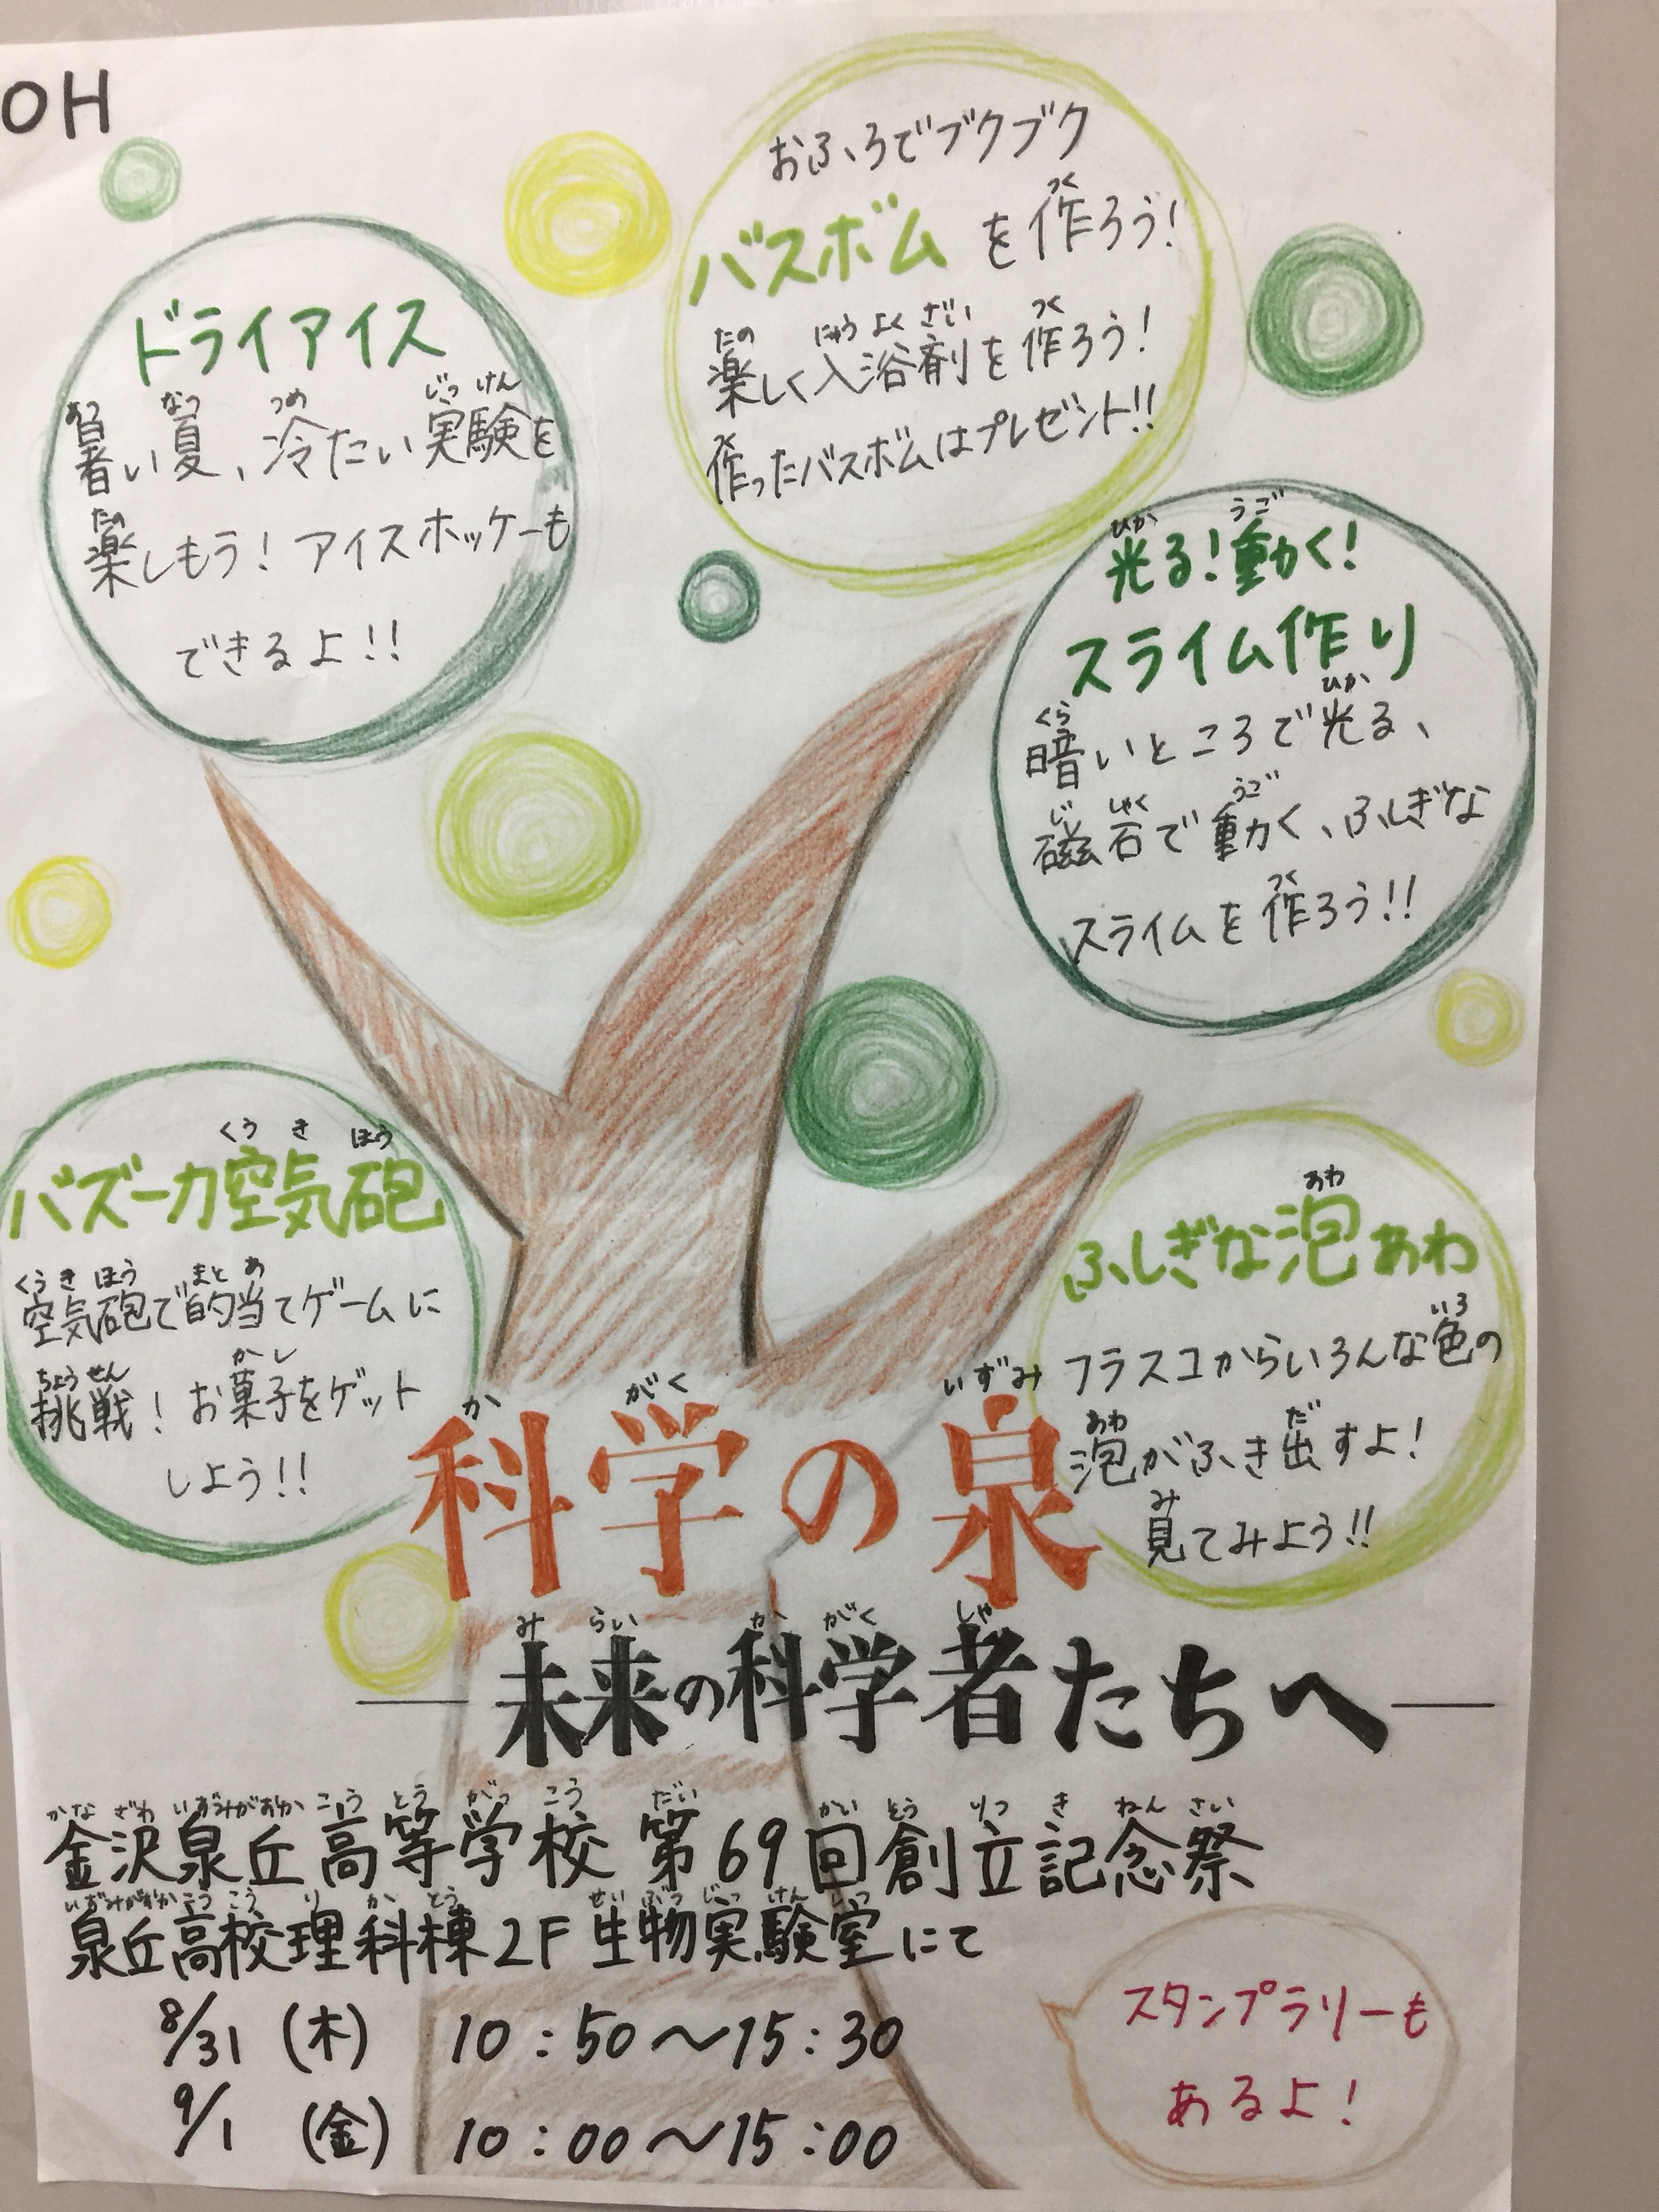 OH
おふろでブクブク
バスボムを作ろう!
楽しく入浴剤を作ろう!
作ったバスボムはプレゼント!!
ドライアイス
暑い夏、冷たい実験を
楽しもう! アイスホッケーも
できるよ!!
光る!動く!
スライム作り
暗いところで光る、
磁石で動く、ふしぎな
スライムを作ろう!!
バズーカ空気砲
空気砲で的当てゲームに
挑戦! お菓子をゲット
しよう!!
ふしぎな泡あわ
フラスコからいろんな色の
泡がふき出すよ!
見てみよう!!
科学の泉
―未来の科学者たちへ―
金沢泉丘高等学校 第69回創立記念祭
泉丘高校理科棟2F 生物実験室にて
8/31 (木) 10:50〜15:30
9/1 (金) 10:00〜15:00
スタンプラリーも
あるよ!